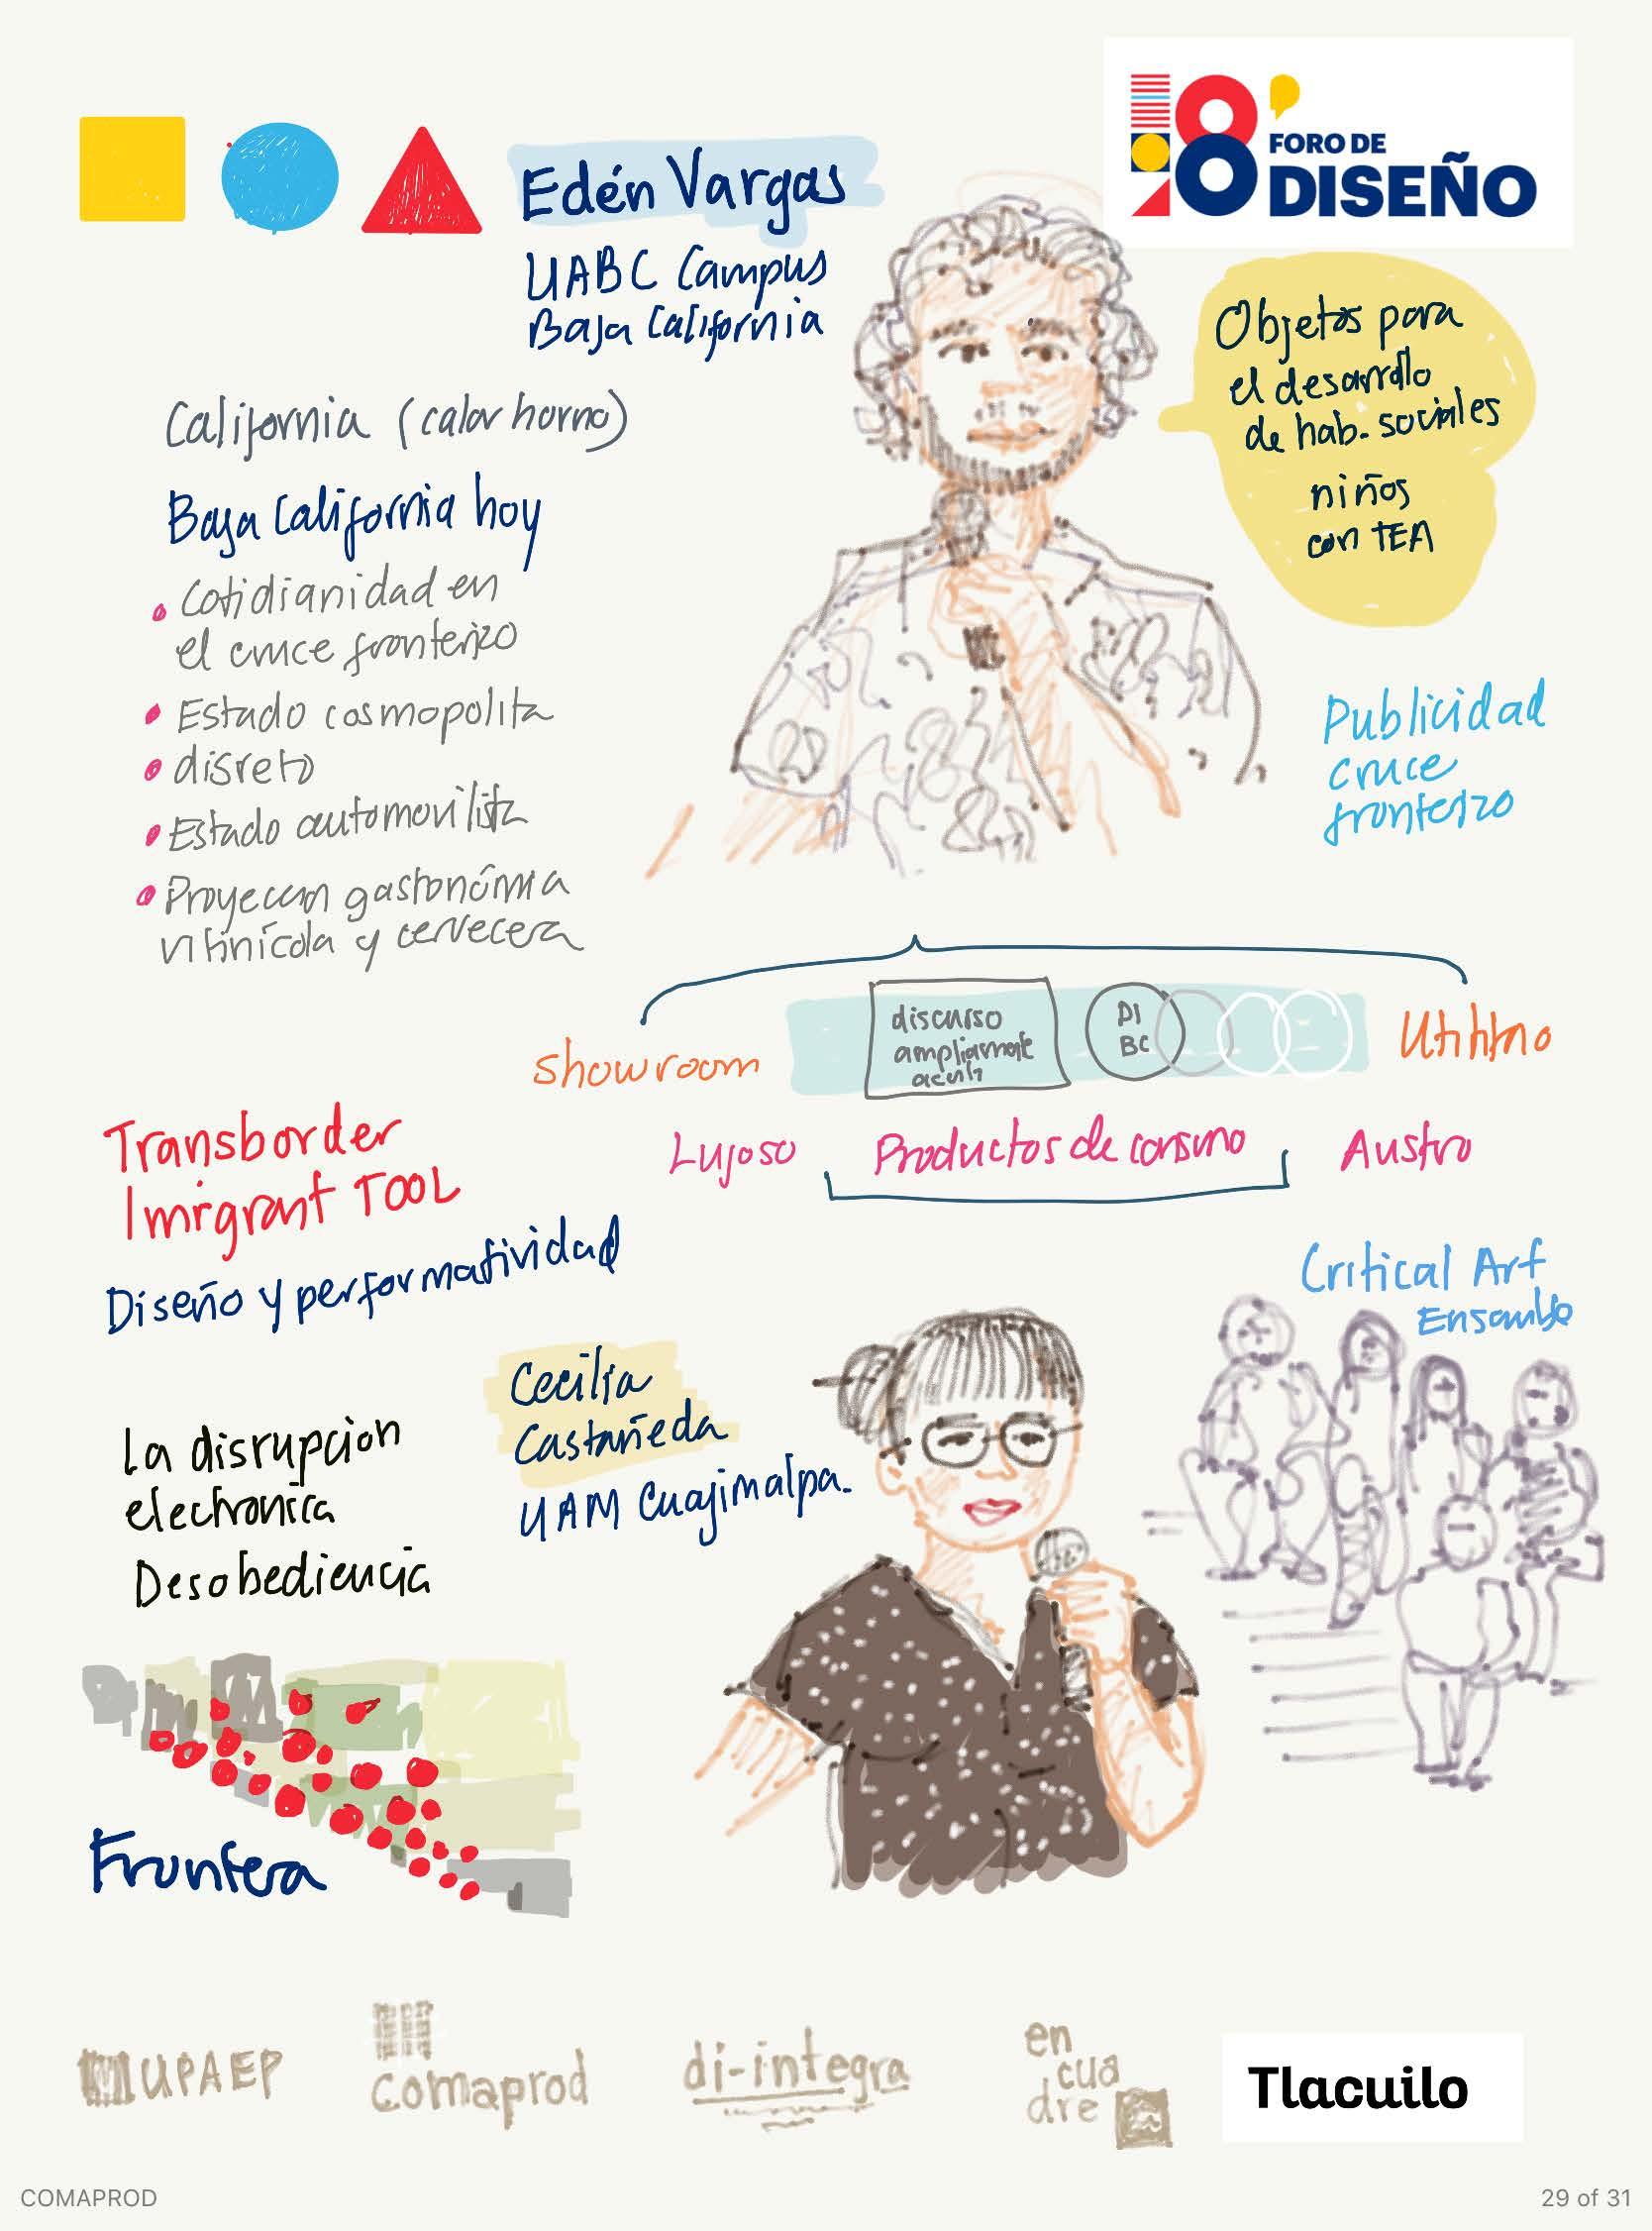 18º FORO DE
DISEÑO
Edén Vargas
UABC Campus
Baja California
Objetos para
el desarrollo
de hab. sociales
niños
con TEA
California (calor horno)
Baja California hoy
Cotidianidad en
el cruce fronterizo
Estado cosmopolita
disreto
Estado automovilista
Proyeccion gastronómica
vitinícola y cervecera
Publicidad
cruce
fronterizo
showroom
discurso
ampliamente
DI
BC
Lujoso
Productos de consumo
Austro
Transborder
Imigrant TOOL
Diseño y performatividad
Critical Art
Ensamble
Cecilia
Castañeda
UAM Cuajimalpa.
La disrupcion
electronica
Desobediencia
Frontera
UPAEP
Comaprod
di-integra
en
cua
dre
Tlacuilo
COMAPROD
29 of 31